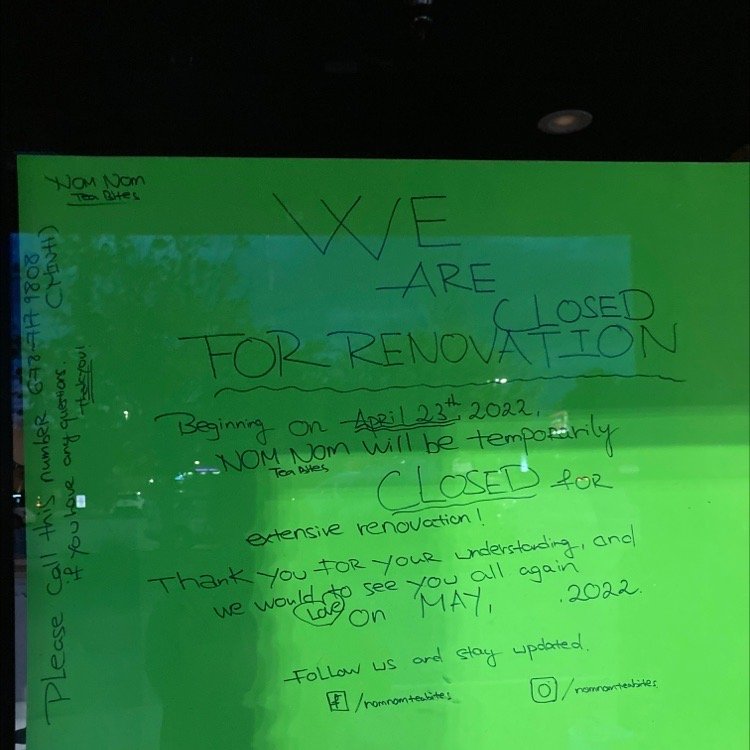 NOM NOM
Tea Bites
WE
ARE
CLOSED
FOR RENOVATION
Beginning on April 23th, 2022,
NOM NOM will be temporarily
Tea Bites
CLOSED for
extensive renovation!
Thank you for your understanding, and
we would to see you all again
Love
on MAY, 2022.
Follow us and stay updated.
f /nomnomteabites
/nomnomteabites
Please call this number 678-717 9808
(MINH)
if you have any questions.
Thank you!